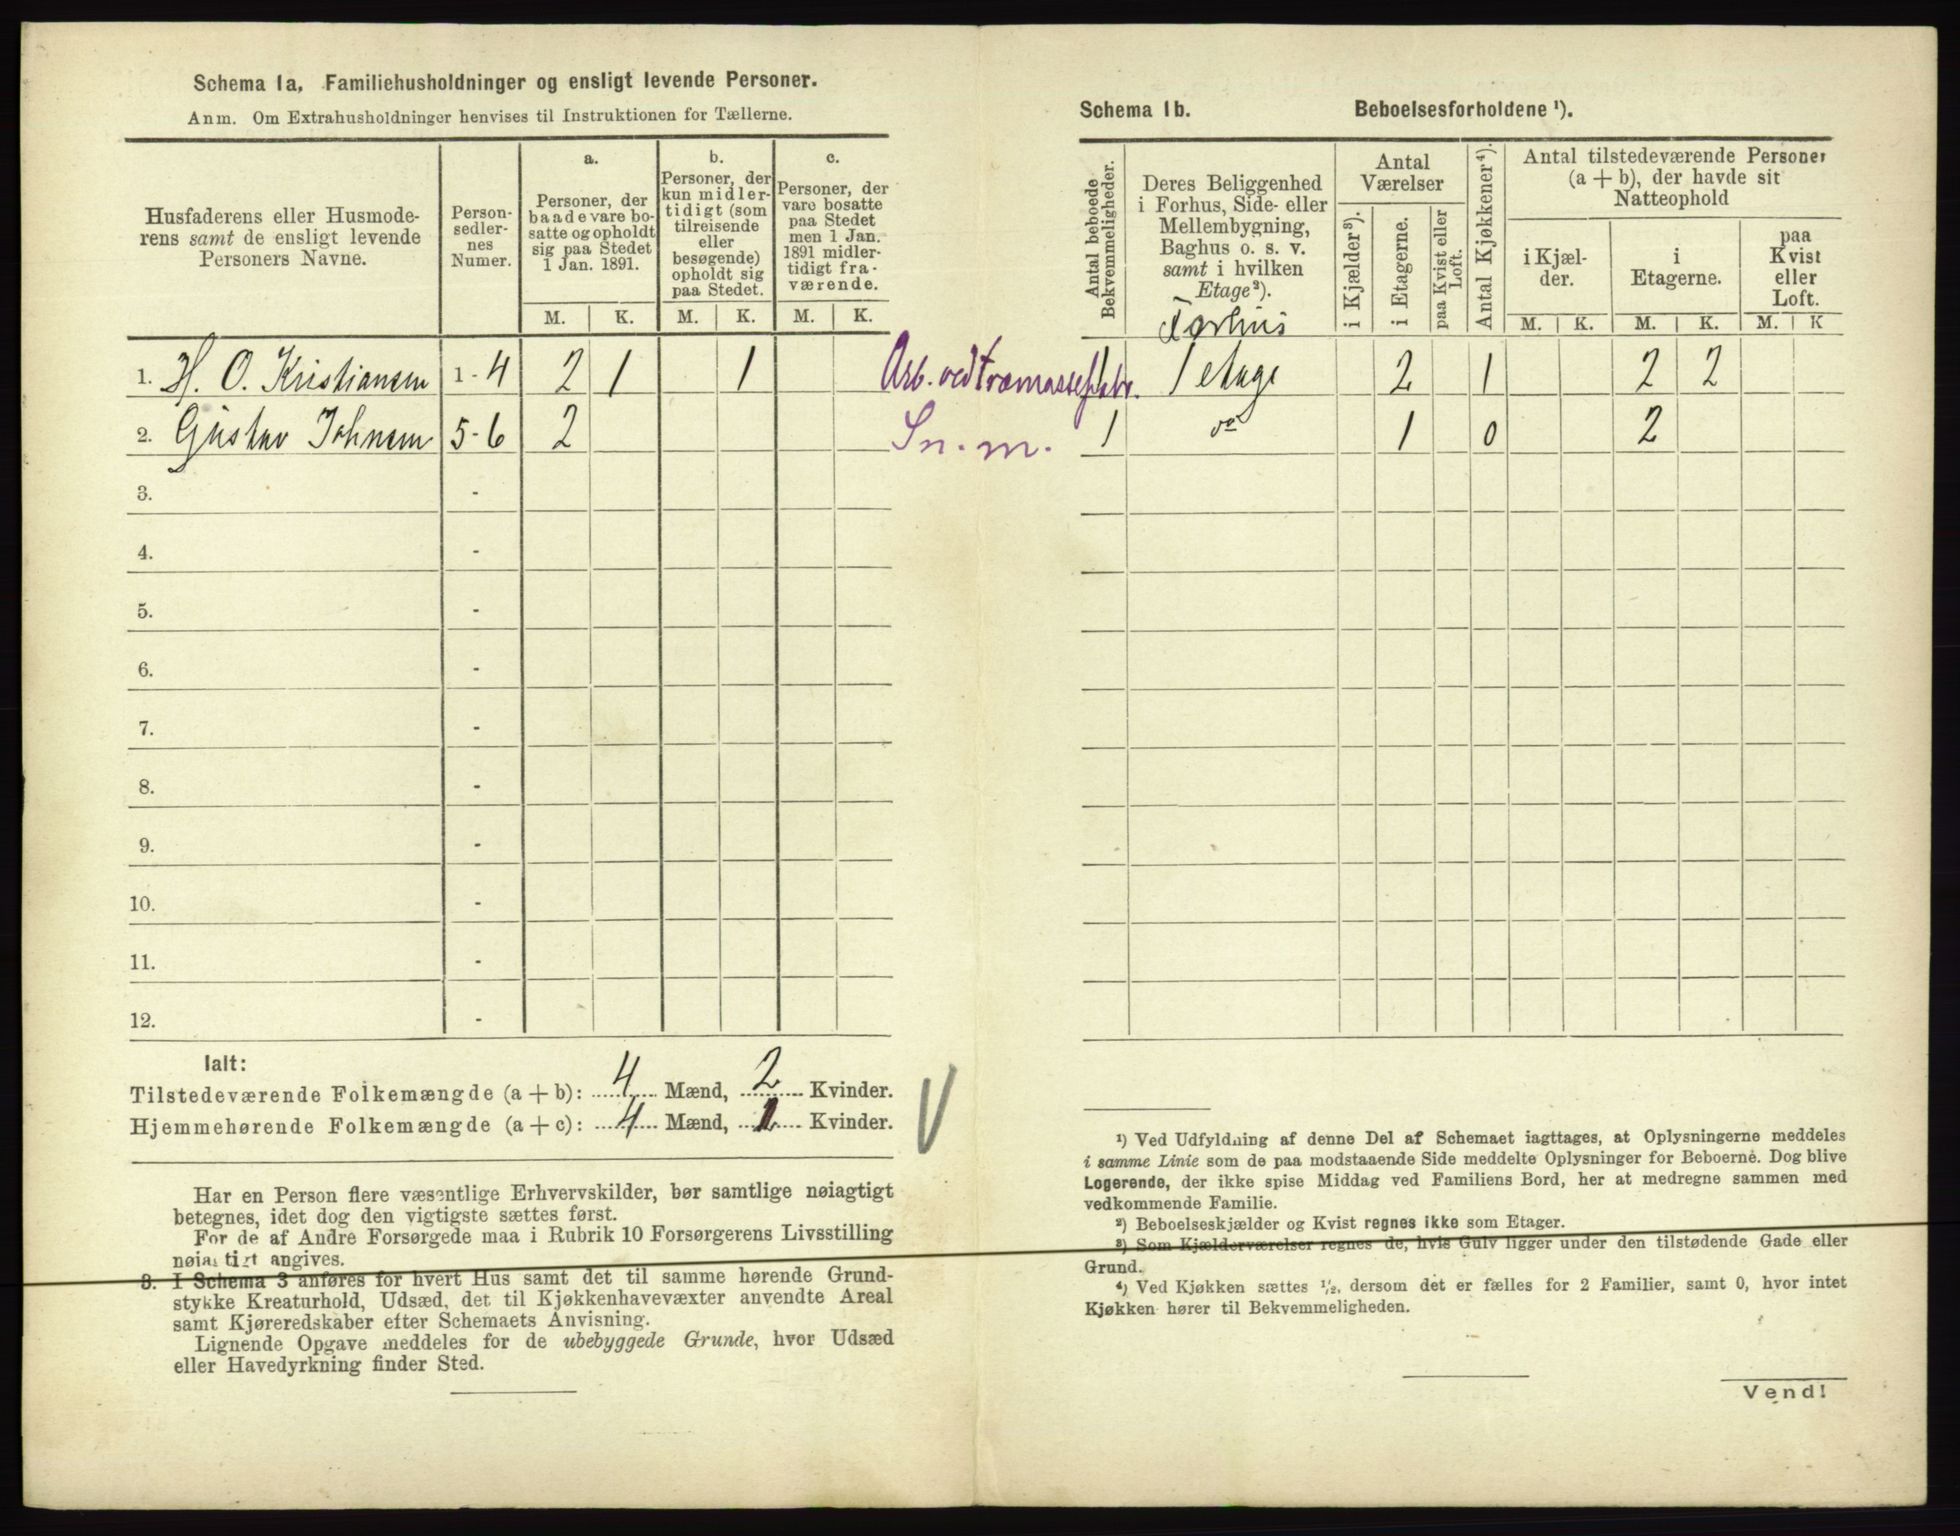 Schema 1a, Familiehusholdninger og ensligt levende Personer.
Anm. Om Extrahusholdninger henvises til Instruktionen for Tællerne.
Husfaderens eller Husmode-
rens samt de ensligt levende
Personers Navne.
Person-
sedler-
nes
Numer.
a.
Personer, der
baade vare bo-
satte og opholdt
sig paa Stedet
1 Jan. 1891.
b.
Personer, der
kun midler-
tidigt (som
tilreisende
eller
besøgende)
opholdt sig
paa Stedet.
c.
Personer, der
vare bosatte
paa Stedet
men 1 Jan.
1891 midler-
tidigt fra-
værende.
M. K. M. K. M. K.
1. H. O. Kristiansen 1-4 2 1 1
2. Gustav Johnsen 5-6 2
3. -
4. -
5. -
6. -
7. -
8. -
9. -
10. -
11. -
12. -
Ialt:
Tilstedeværende Folkemængde (a + b): 4 Mænd, 2 Kvinder.
Hjemmehørende Folkemængde (a + c): 4 Mænd, 1 Kvinder.
Har en Person flere væsentlige Erhvervskilder, bør samtlige nøiagtigt
betegnes, idet dog den vigtigste sættes først.
For de af Andre Forsørgede maa i Rubrik 10 Forsørgerens Livsstilling
nøiagtigt angives.
3. I Schema 3 anføres for hvert Hus samt det til samme hørende Grund-
stykke Kreaturhold, Udsæd, det til Kjøkkenhavevæxter anvendte Areal
samt Kjøreredskaber efter Schemaets Anvisning.
Lignende Opgave meddeles for de ubebyggede Grunde, hvor Udsæd
eller Havedyrkning finder Sted.
Schema 1b. Beboelsesforholdene ¹).
Antal beboede
Bekvemmeligheder.
Deres Beliggenhed
i Forhus, Side- eller
Mellembygning,
Baghus o. s. v.
samt i hvilken
Etage²).
Forhus
Antal
Værelser
i Kjælder³).
i Etagerne.
paa Kvist eller
Loft.
Antal Kjøkkener⁴).
Antal tilstedeværende Personer
(a + b), der havde sit
Natteophold
i Kjæl-
der.
i
Etagerne.
paa
Kvist
eller
Loft.
M. K. M. K. M. K
Arb. ved træmassefabr. 1 1 etage 2 1 2 2
Sn. m. 1 do 1 0 2
¹) Ved Udfyldning af denne Del af Schemaet iagttages, at Oplysningerne meddeles
i samme Linie som de paa modstaaende Side meddelte Oplysninger for Beboerne. Dog blive
Logerende, der ikke spise Middag ved Familiens Bord, her at medregne sammen med
vedkommende Familie.
²) Beboelseskjælder og Kvist regnes ikke som Etager.
³) Som Kjælderværelser regnes de, hvis Gulv ligger under den tilstødende Gade eller
Grund.
⁴) Ved Kjøkken sættes ½, dersom det er fælles for 2 Familier, samt 0, hvor intet
Kjøkken hører til Bekvemmeligheden.
Vend!